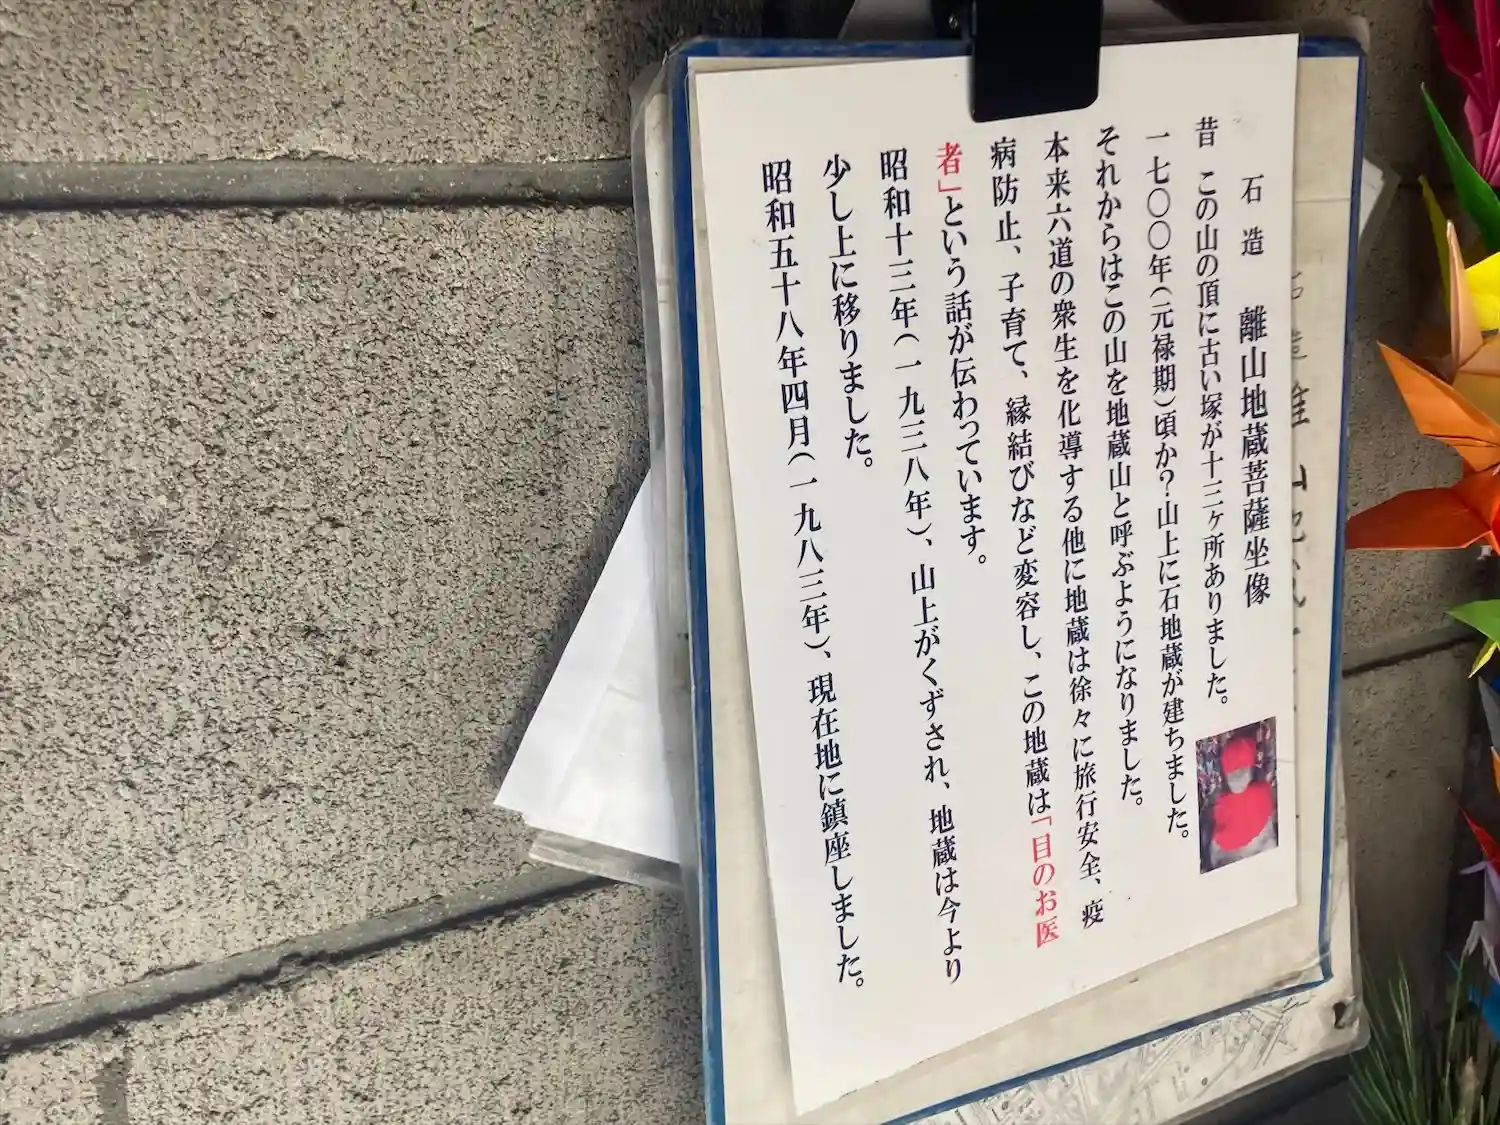 石造 離山地蔵菩薩坐像
昔 この山の頂に古い塚が十三ヶ所ありました。
一七〇〇年(元禄期)頃か?山上に石地蔵が建ちました。
それからはこの山を地蔵山と呼ぶようになりました。
本来六道の衆生を化導する他に地蔵は徐々に旅行安全、疫
病防止、子育て、縁結びなど変容し、この地蔵は「目のお医
者」という話が伝わっています。
昭和十三年(一九三八年)、山上がくずされ、地蔵は今より
少し上に移りました。
昭和五十八年四月(一九八三年)、現在地に鎮座しました。